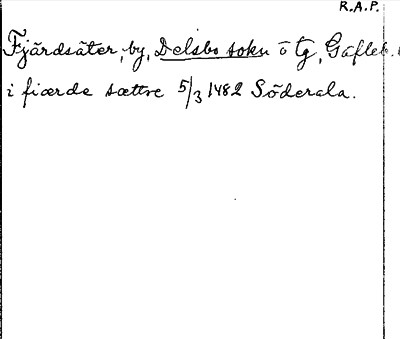 R.A.P.
Fjärdsäter, by, Delsbo sokn ö tg, Gäfleb.
i fiærde sættre 5/3 1482 Söderala.